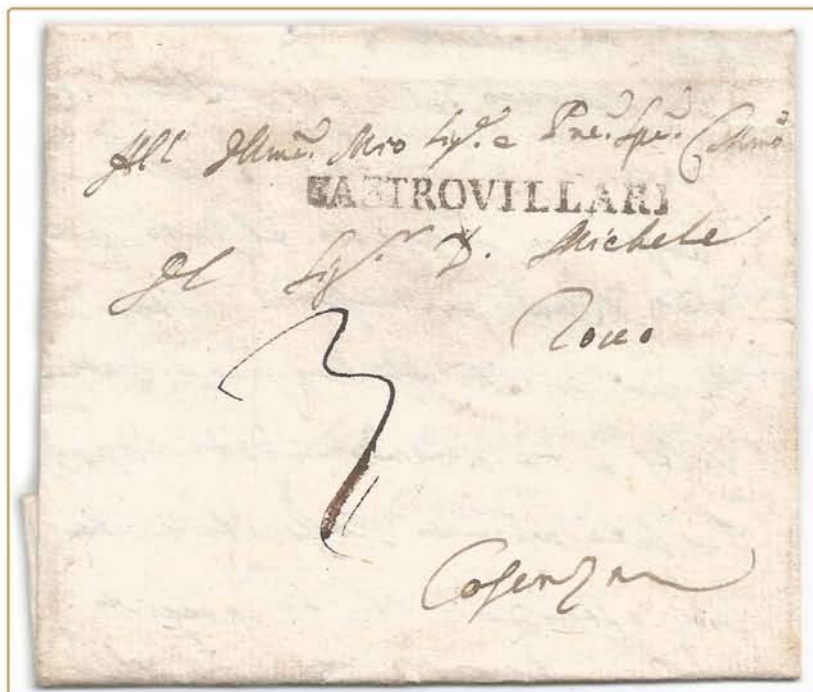 All' Illmo. Mio Sig.r e Pne.
CASTROVILLARI
Il Sig.r D. Michele
Rocco
3
Cosenza